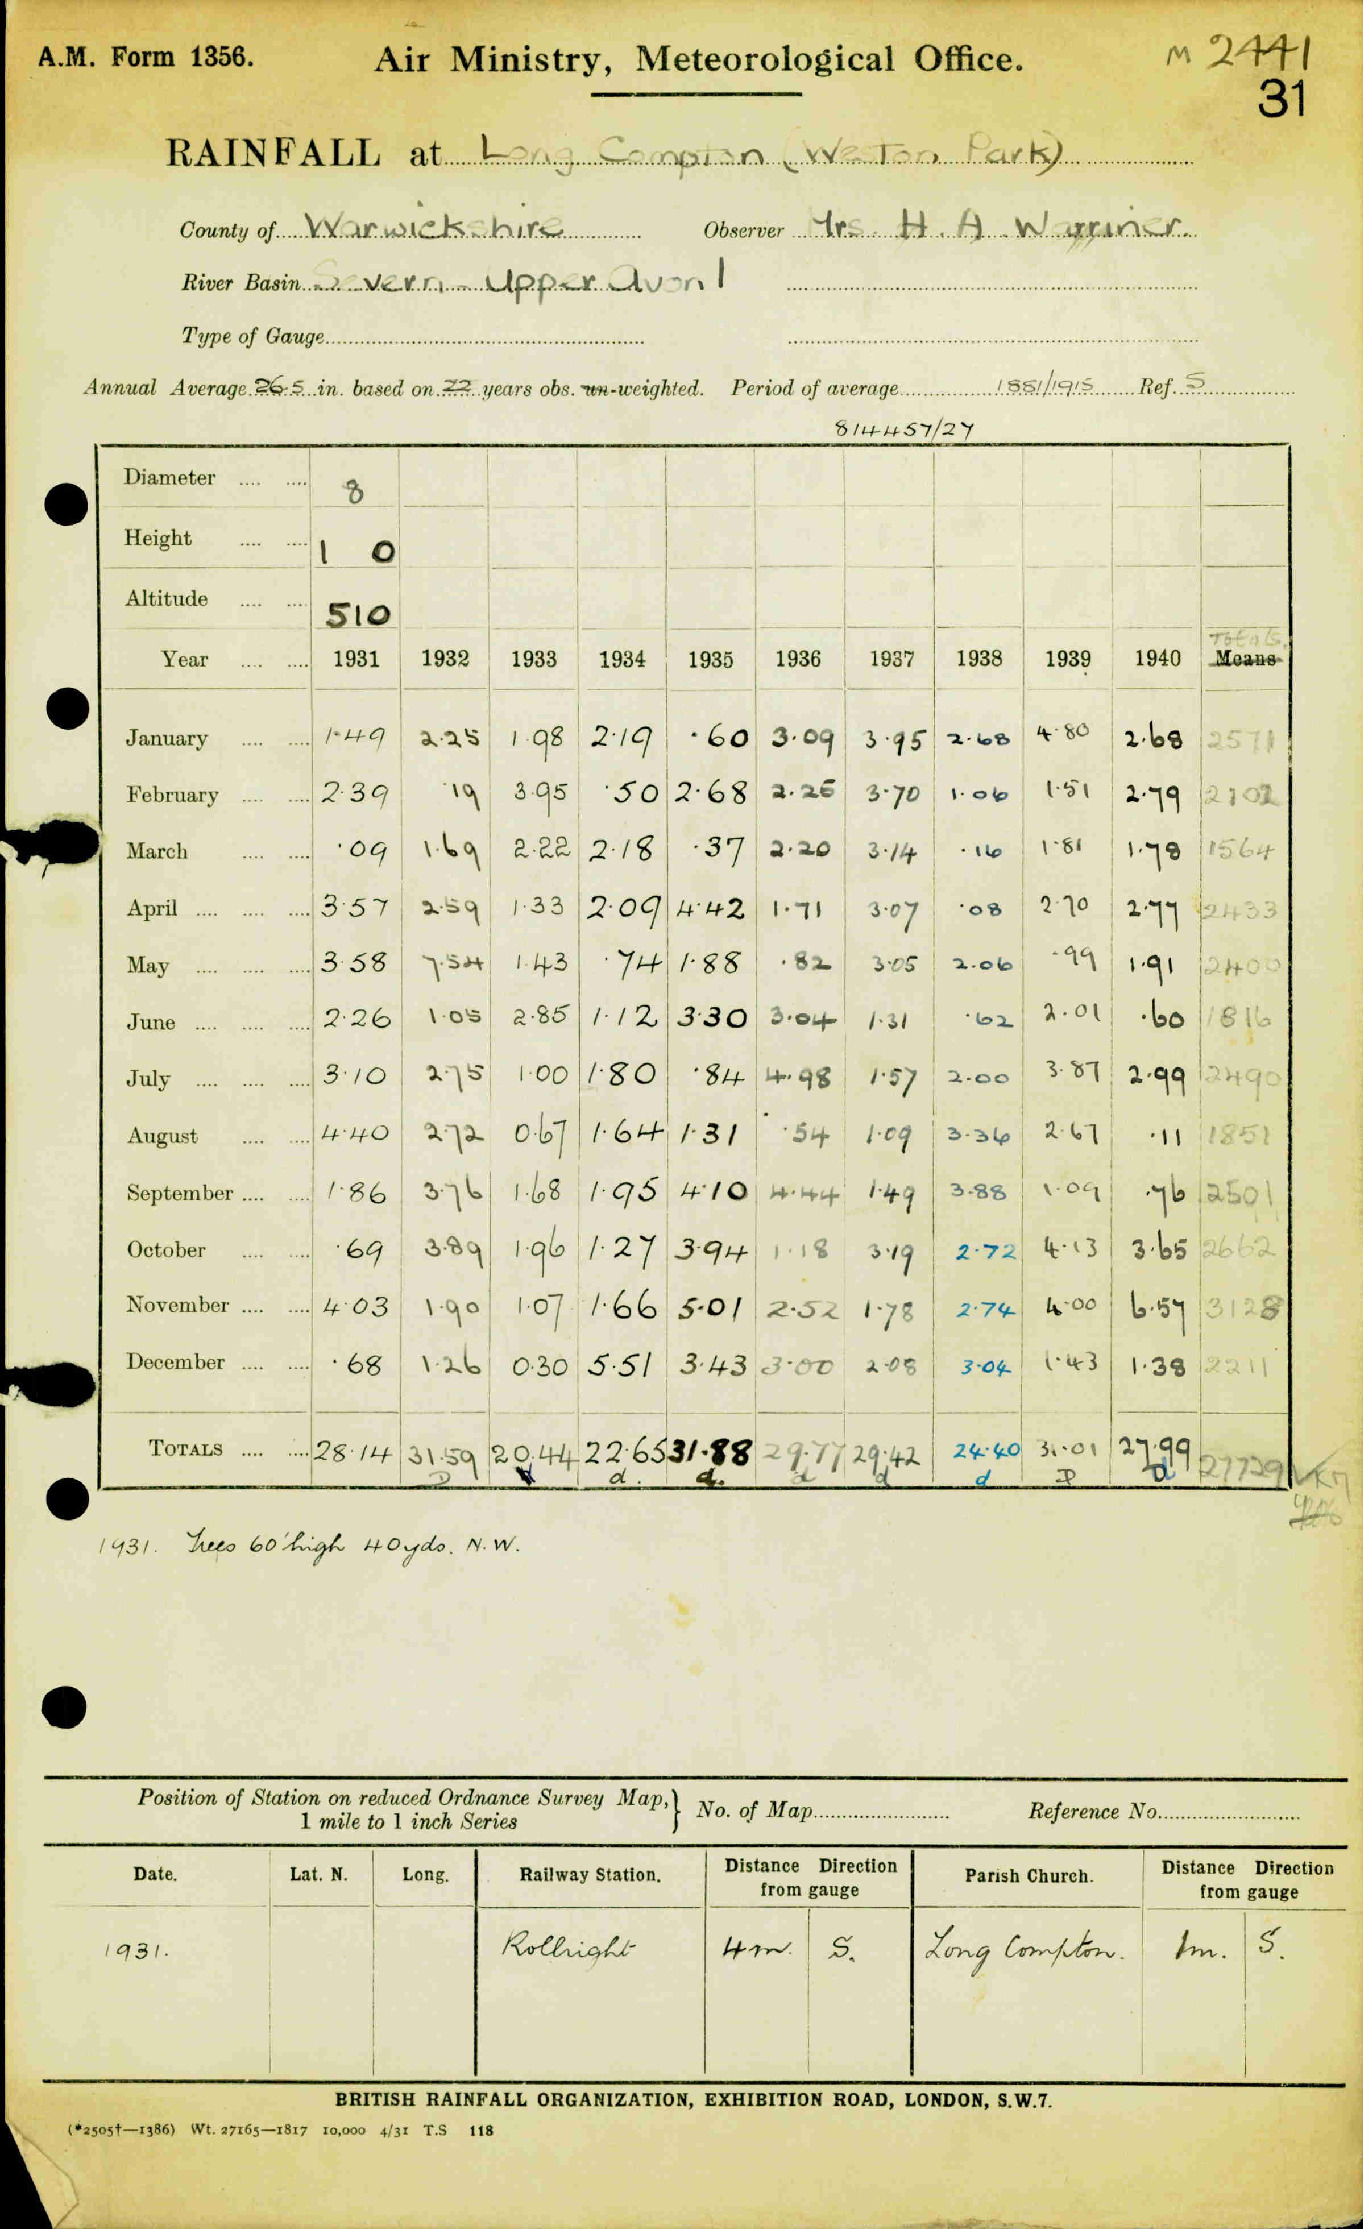 A.M. Form 1356. Air Ministry, Meteorological Office. M 2441
31
RAINFALL at Long Compton (Weston Park)
County of Warwickshire Observer Mrs. H. A. Warriner.
River Basin Severn - Upper Avon 1
Type of Gauge
Annual Average 26.5 in. based on 22 years obs. un-weighted. Period of average 1881/1915 Ref. S
814457/27
Diameter 8
Height 1 0
Altitude 510
Totals
Year 1931 1932 1933 1934 1935 1936 1937 1938 1939 1940 Means
January 1.49 2.25 1.98 2.19 .60 3.09 3.95 2.68 4.80 2.68 2571
February 2.39 .19 3.95 .50 2.68 2.26 3.70 1.06 1.51 2.79 2102
March .09 1.69 2.22 2.18 .37 2.20 3.14 .16 1.81 1.78 1564
April 3.57 2.59 1.33 2.09 4.42 1.71 3.07 .08 2.70 2.77 2433
May 3.58 7.54 1.43 .74 1.88 .82 3.05 2.06 .99 1.91 2400
June 2.26 1.05 2.85 1.12 3.30 3.04 1.31 .62 2.01 .60 1816
July 3.10 2.75 1.00 1.80 .84 4.98 1.57 2.00 3.87 2.99 2490
August 4.40 2.72 0.67 1.64 1.31 .54 1.09 3.36 2.67 .11 1851
September 1.86 3.76 1.68 1.95 4.10 4.44 1.49 3.88 1.09 .76 2501
October .69 3.89 1.96 1.27 3.94 1.18 3.19 2.72 4.13 3.65 2662
November 4.03 1.90 1.07 1.66 5.01 2.52 1.78 2.74 4.00 6.57 3128
December .68 1.26 0.30 5.51 3.43 3.00 2.08 3.04 1.43 1.38 2211
TOTALS 28.14 31.59 20.44 22.65 31.88 29.77 29.42 24.40 31.01 27.99 27729
D d. d. d d d D d
1931. Trees 60' high 40yds. N.W.
Position of Station on reduced Ordnance Survey Map,} No. of Map Reference No.
1 mile to 1 inch Series
Date. Lat. N. Long. Railway Station. Distance Direction Parish Church. Distance Direction
from gauge from gauge
1931. Rollright 4m. S. Long Compton. 1m. S.
BRITISH RAINFALL ORGANIZATION, EXHIBITION ROAD, LONDON, S.W.7.
(*2505†—1386) Wt. 27165—1817 10,000 4/31 T.S 118